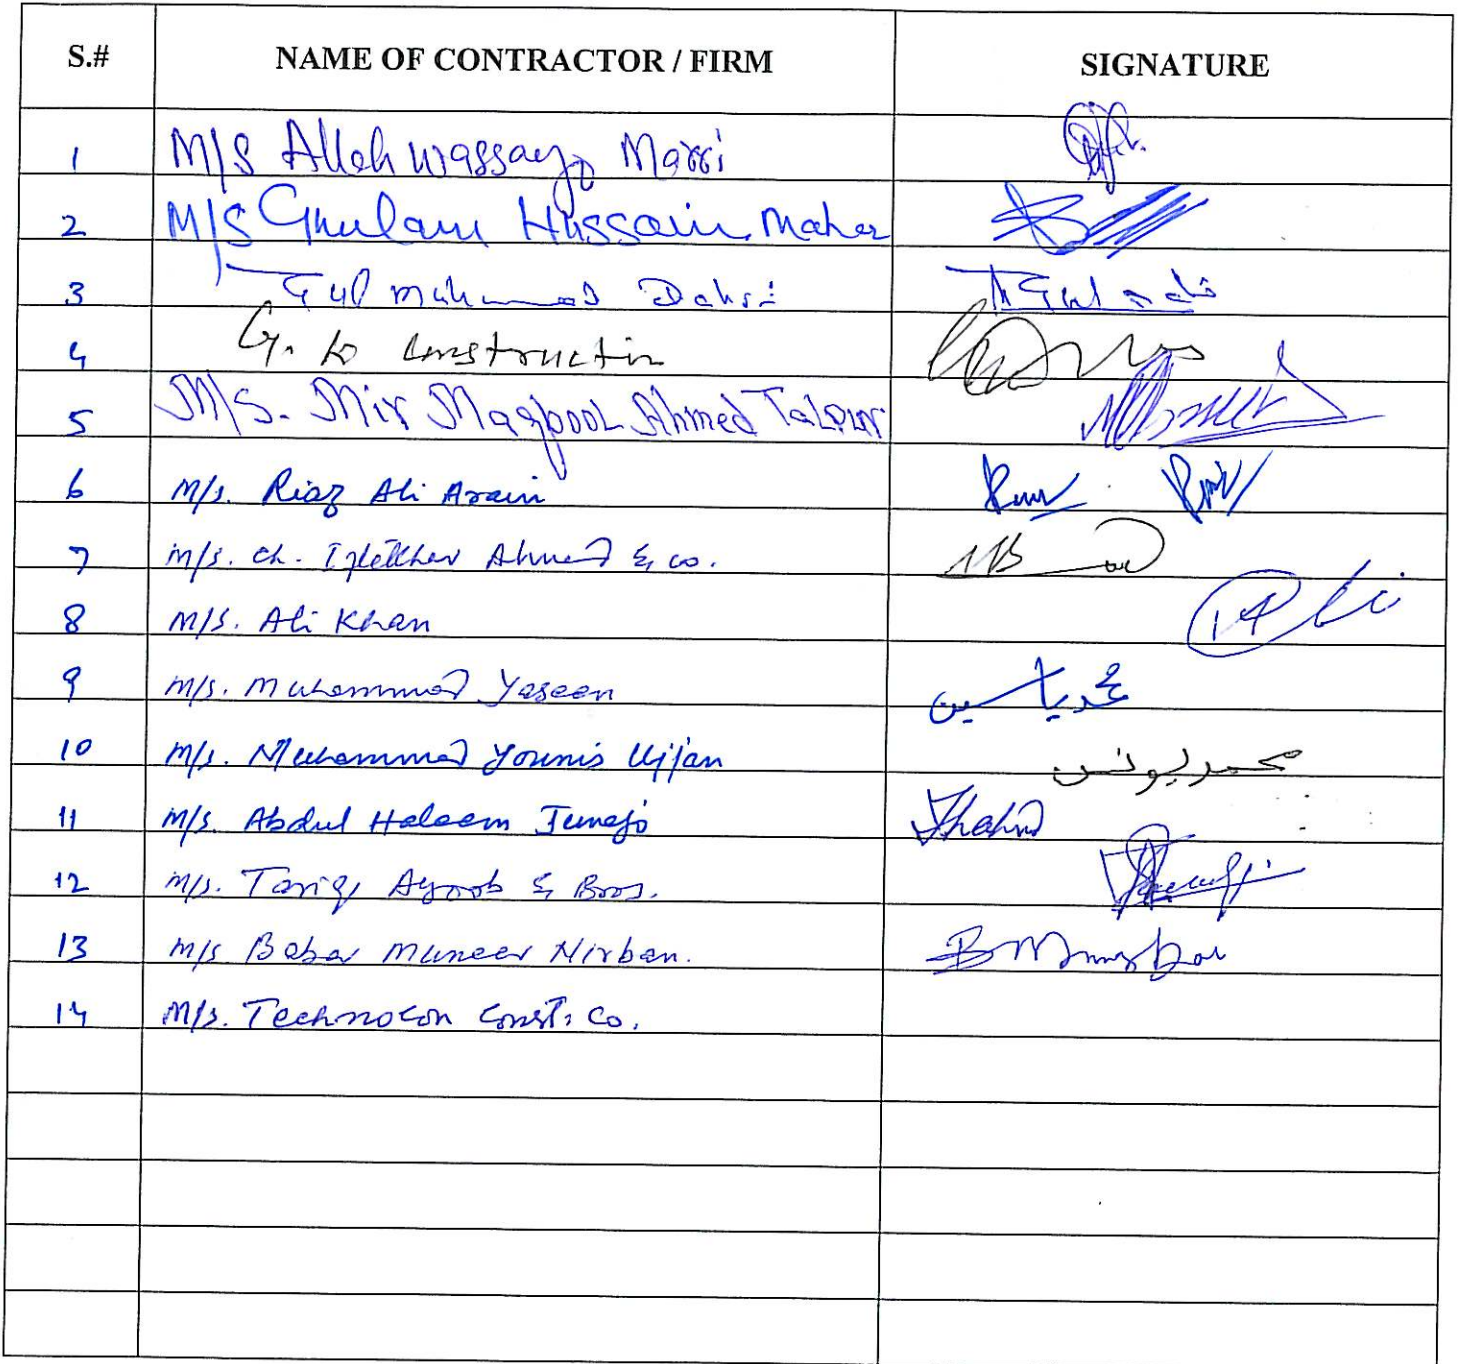 S.# NAME OF CONTRACTOR / FIRM SIGNATURE
1 M/S Allah wassayo Marri
2 M/S Ghulam Hussain Maher
3 Gul Muhammad Dahri
4 G. Construction
5 M/S. Mir Maqbool Ahmed Talpur
6 M/s. Riaz Ali Arain
7 M/s. Ch. Iftekhar Ahmed & co.
8 M/s. Ali Khan
9 M/s. Muhammad Yaseen محمد یاسین
10 M/s. Muhammad Younis Ujjan محمد یونس
11 M/s. Abdul Haleem Junejo
12 M/s. Tariq Ayoob & Bros.
13 M/s Babar Muneer Nirban.
14 M/s. Technocon Const: Co.